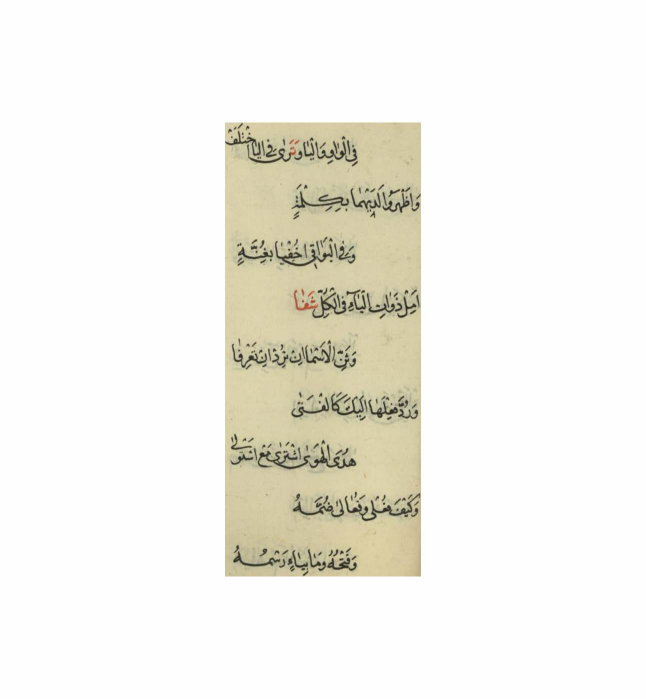 فِي الْوَاوِ وَالْيَا وَتَرَى فِي الْيَا اخْتَلَفْ
وَأَظْهَرُوا لَدَيْهِمَا بِكِلْمَةٍ
وَفِي الْبَوَاقِي أُخْفِيَا بِغُنَّةٍ
أَمِلْ ذَوَاتِ الْيَاءِ فِي الْكُلِّ شَفَا
وَثَنِّ الْأَسْمَا إِنْ تُرِدْ أَنْ تَعْرِفَا
وَرُدَّ فِعْلَهَا إِلَيْكَ كَالْفَتَى
هُدَى الْهَوَى اشْتَرَى مَعَ اسْتَوَلَى
وَكَيْفَ فَعْلَى وَفُعَالَى ضُمَّهُ
وَفَتْحُهُ وَمَا بِيَاءٍ رَسْمُهُ